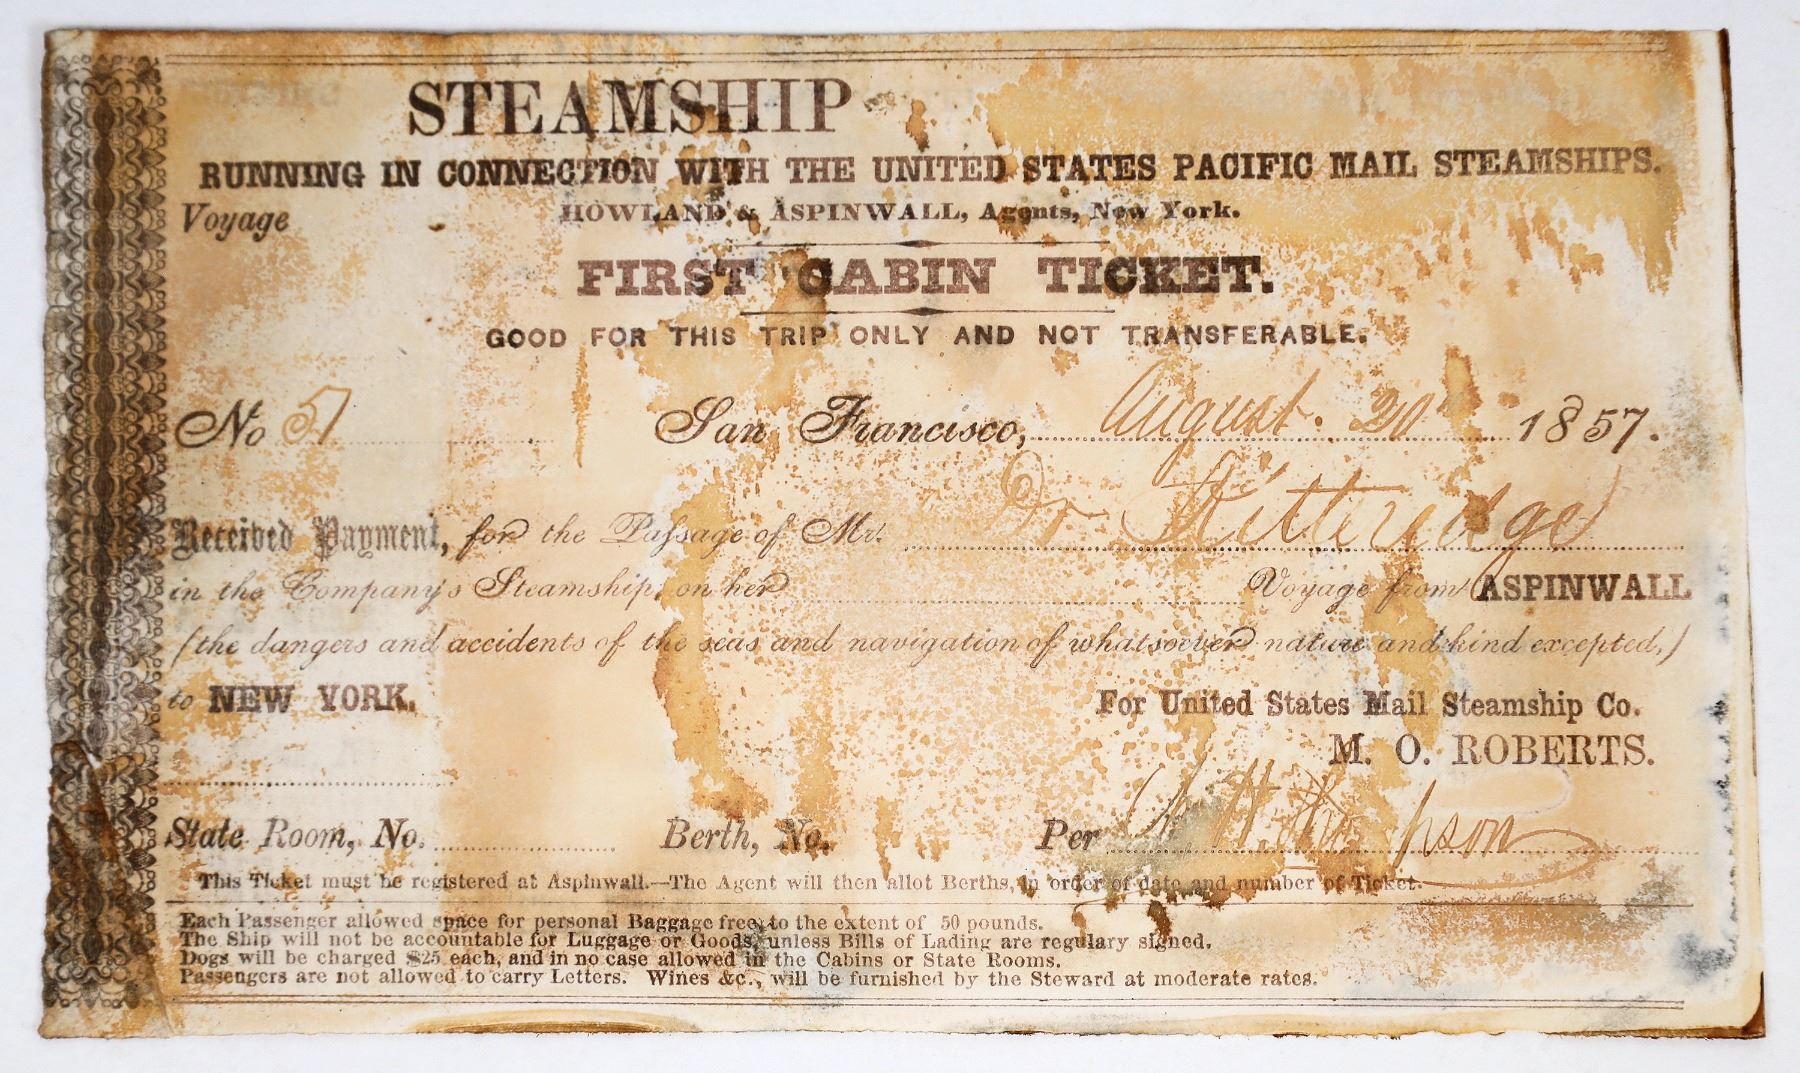 STEAMSHIP
RUNNING IN CONNECTION WITH THE UNITED STATES PACIFIC MAIL STEAMSHIPS.
Voyage HOWLAND & ASPINWALL, Agents, New York.
FIRST CABIN TICKET.
GOOD FOR THIS TRIP ONLY AND NOT TRANSFERABLE.
No 51 San Francisco, August. 20 1857.
Received Payment, for the Passage of Mr. Dr Kitteredge
in the Company's Steamship, on her Voyage from ASPINWALL
(the dangers and accidents of the seas and navigation of whatsoever nature and kind excepted,)
to NEW YORK.
For United States Mail Steamship Co.
M. O. ROBERTS.
State Room, No. Berth, No. Per
This Ticket must be registered at Aspinwall.—The Agent will then allot Berths, in order of date and number of Ticket.
Each Passenger allowed space for personal Baggage free, to the extent of 50 pounds.
The Ship will not be accountable for Luggage or Goods, unless Bills of Lading are regulary signed.
Dogs will be charged $25 each, and in no case allowed in the Cabins or State Rooms.
Passengers are not allowed to carry Letters. Wines &c., will be furnished by the Steward at moderate rates.